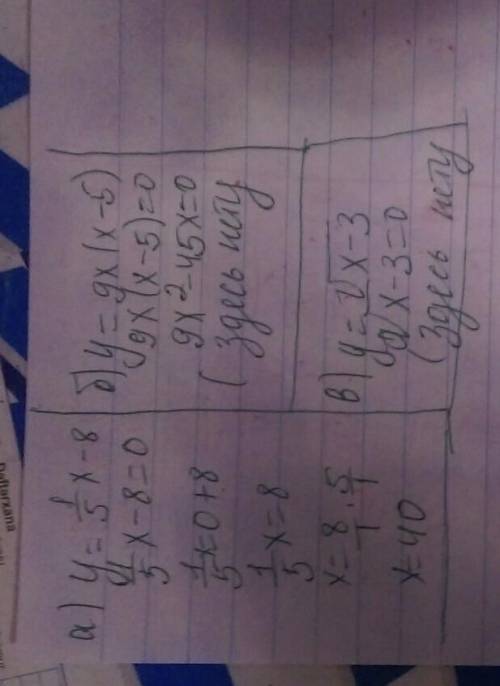 а) y = 1/5 x - 8
1/5 x - 8 = 0
1/5 x = 0 + 8
1/5 x = 8
x = 8/1 · 5/1
x = 40
б) y = 9x(x-5)
9x(x-5)=0
9x² - 45x = 0
(Здесь нету
в) y = √x-3
√x-3=0
(Здесь нету
Dəftərxana